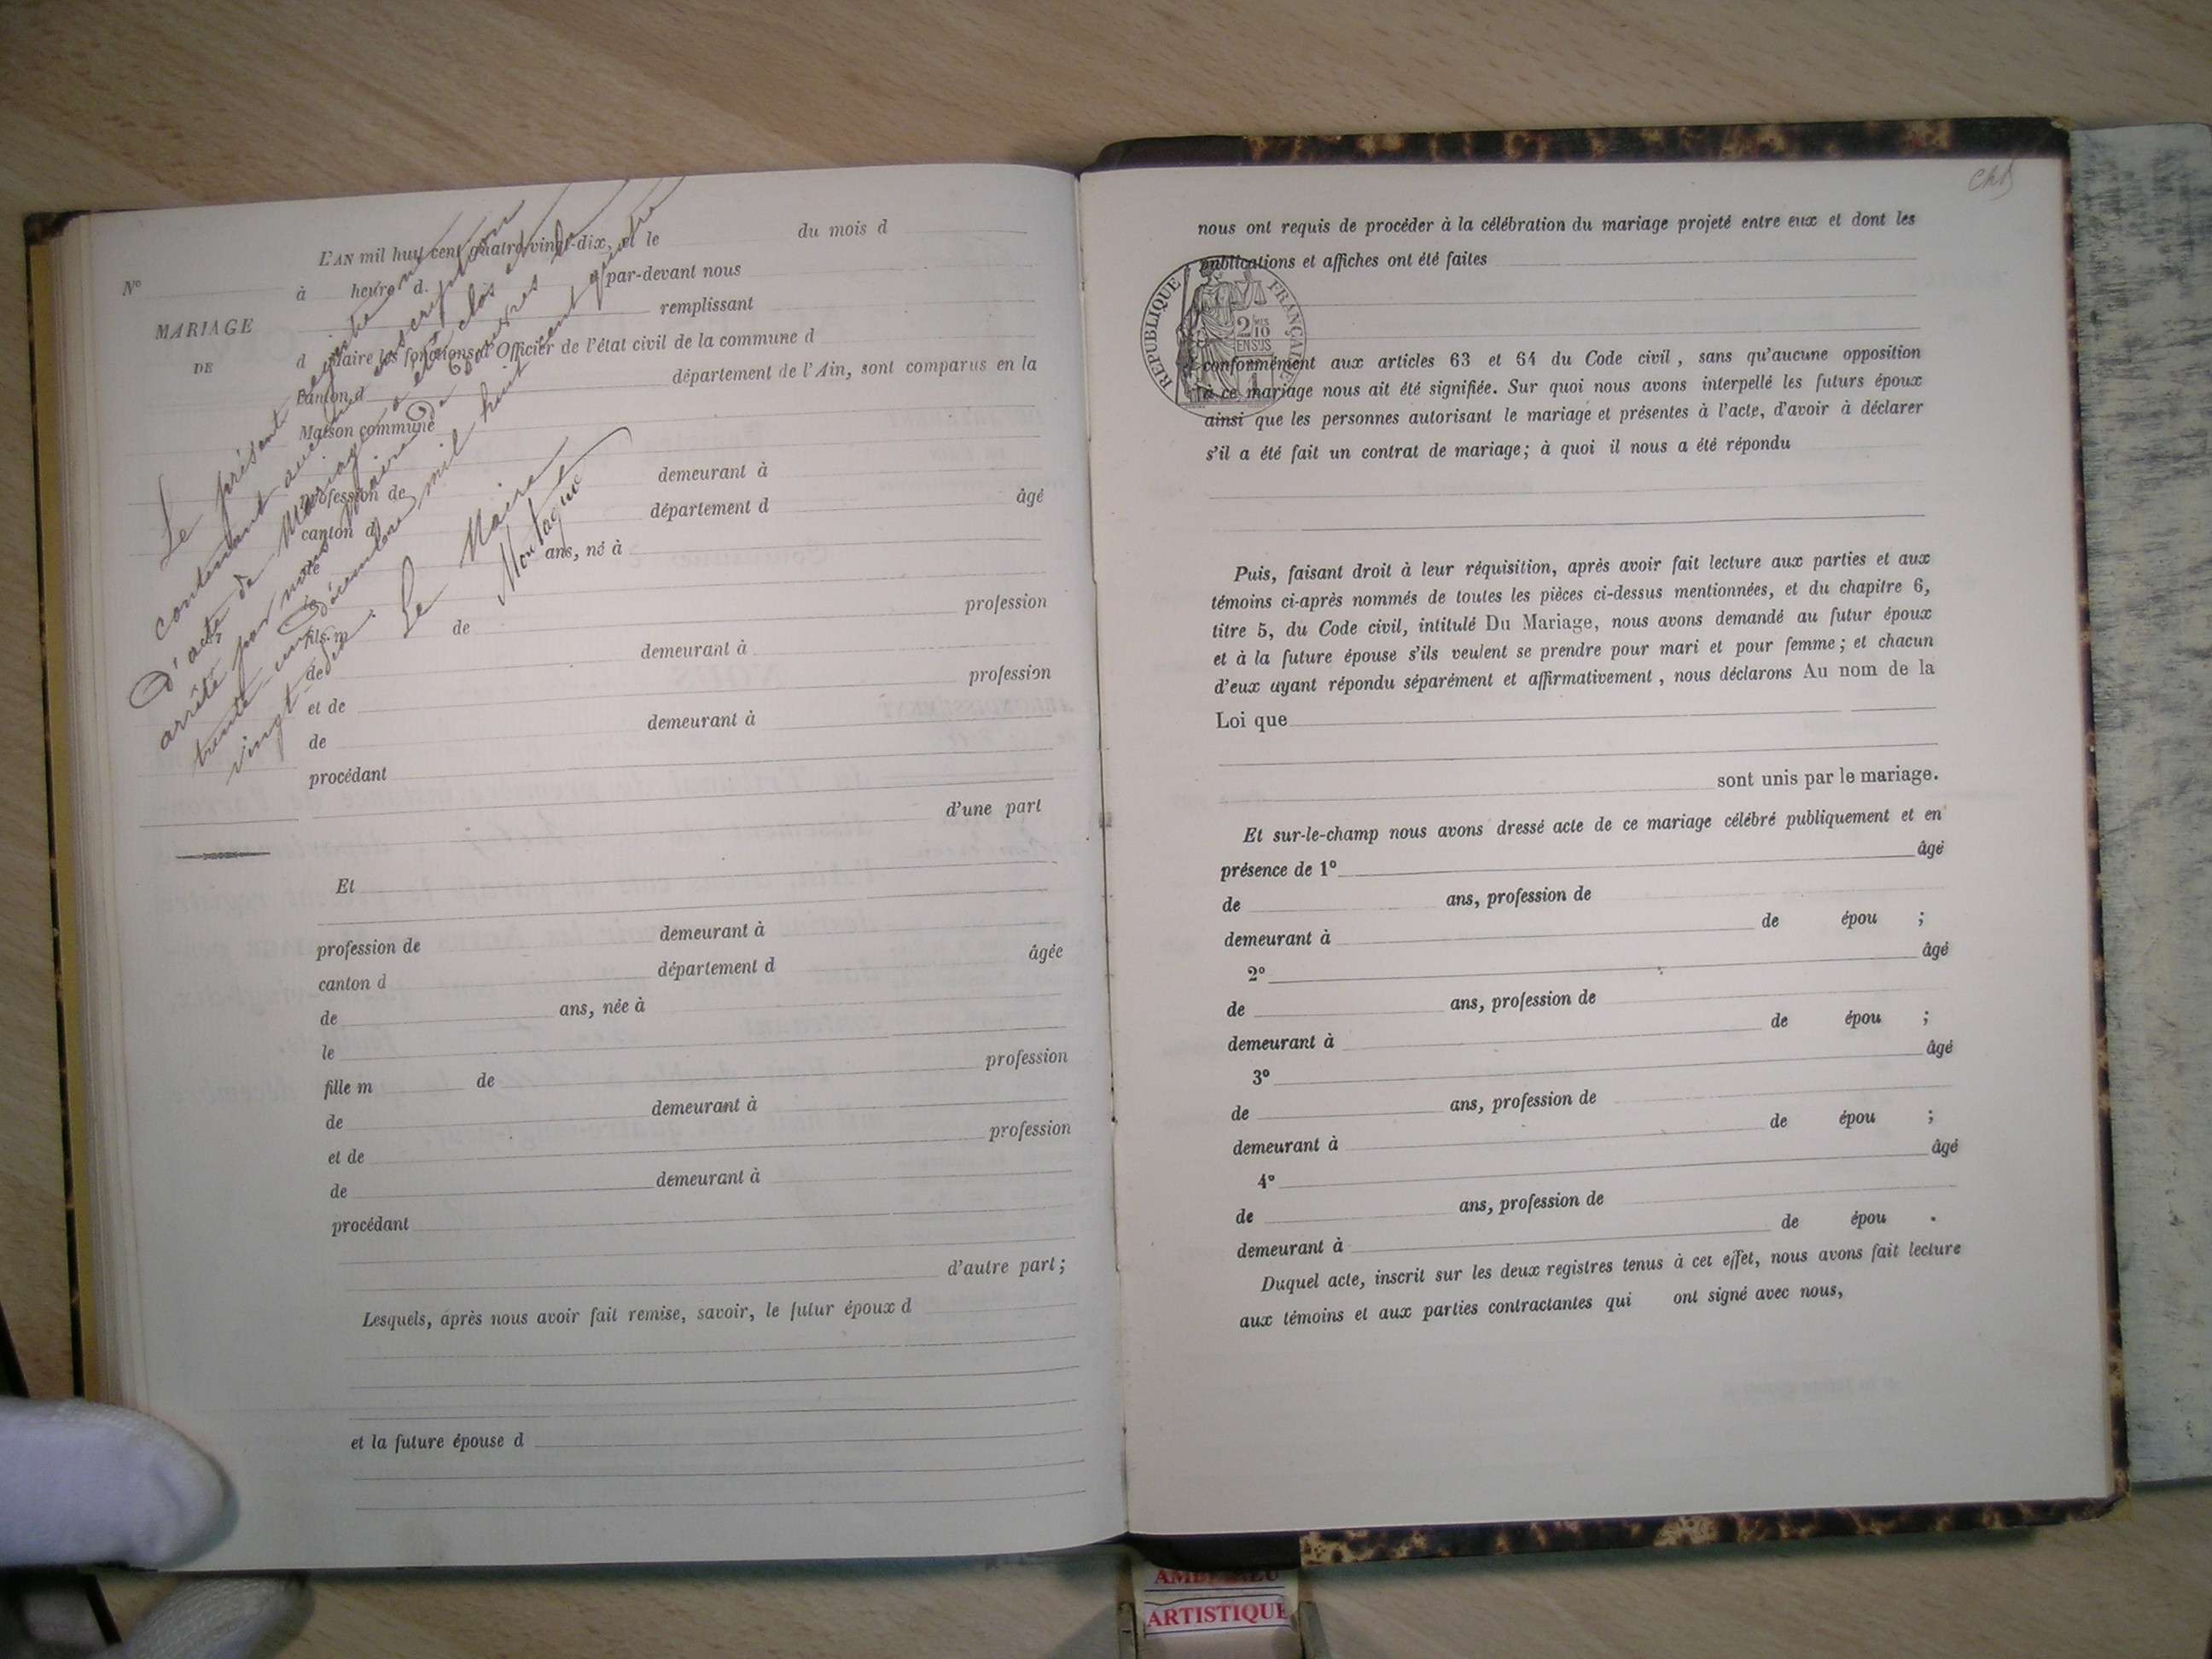 L'AN mil huit cent quatre-vingt-dix, et le du mois d
N° à heure d. par-devant nous
MARIAGE remplissant
DE d Maire les fonctions d'Officier de l'état civil de la commune d
canton d département de l'Ain, sont comparus en la
Maison commune
profession de demeurant à
canton d département d âgé
de ans, né à
le
fils m de profession
de demeurant à
et de profession
de demeurant à
procédant
d'une part
Et
profession de demeurant à
canton d département d âgée
de ans, née à
le
fille m de profession
de demeurant à
et de profession
de demeurant à
procédant
d'autre part;
Lesquels, après nous avoir fait remise, savoir, le futur époux d
et la future épouse d
Le présent registre ne
contenant aucune inscription
D'acte de Mariage a été clos et
arrêté par nous Maire de
trente un Décembre mil huit cent quatre
vingt dix.
Le Maire
Montagne
nous ont requis de procéder à la célébration du mariage projeté entre eux et dont les
publications et affiches ont été faites
RÉPUBLIQUE FRANÇAISE
2/10 EN SUS
conformément aux articles 63 et 64 du Code civil, sans qu'aucune opposition
à ce mariage nous ait été signifiée. Sur quoi nous avons interpellé les futurs époux
ainsi que les personnes autorisant le mariage et présentes à l'acte, d'avoir à déclarer
s'il a été fait un contrat de mariage; à quoi il nous a été répondu
Puis, faisant droit à leur réquisition, après avoir fait lecture aux parties et aux
témoins ci-après nommés de toutes les pièces ci-dessus mentionnées, et du chapitre 6,
titre 5, du Code civil, intitulé Du Mariage, nous avons demandé au futur époux
et à la future épouse s'ils veulent se prendre pour mari et pour femme; et chacun
d'eux ayant répondu séparément et affirmativement, nous déclarons Au nom de la
Loi que
sont unis par le mariage.
Et sur-le-champ nous avons dressé acte de ce mariage célébré publiquement et en
présence de 1° âgé
de ans, profession de
demeurant à de épou ;
2° âgé
de ans, profession de
demeurant à de épou ;
3° âgé
de ans, profession de
demeurant à de épou ;
4° âgé
de ans, profession de
demeurant à de épou .
Duquel acte, inscrit sur les deux registres tenus à cet effet, nous avons fait lecture
aux témoins et aux parties contractantes qui ont signé avec nous,
ARTISTIQUE